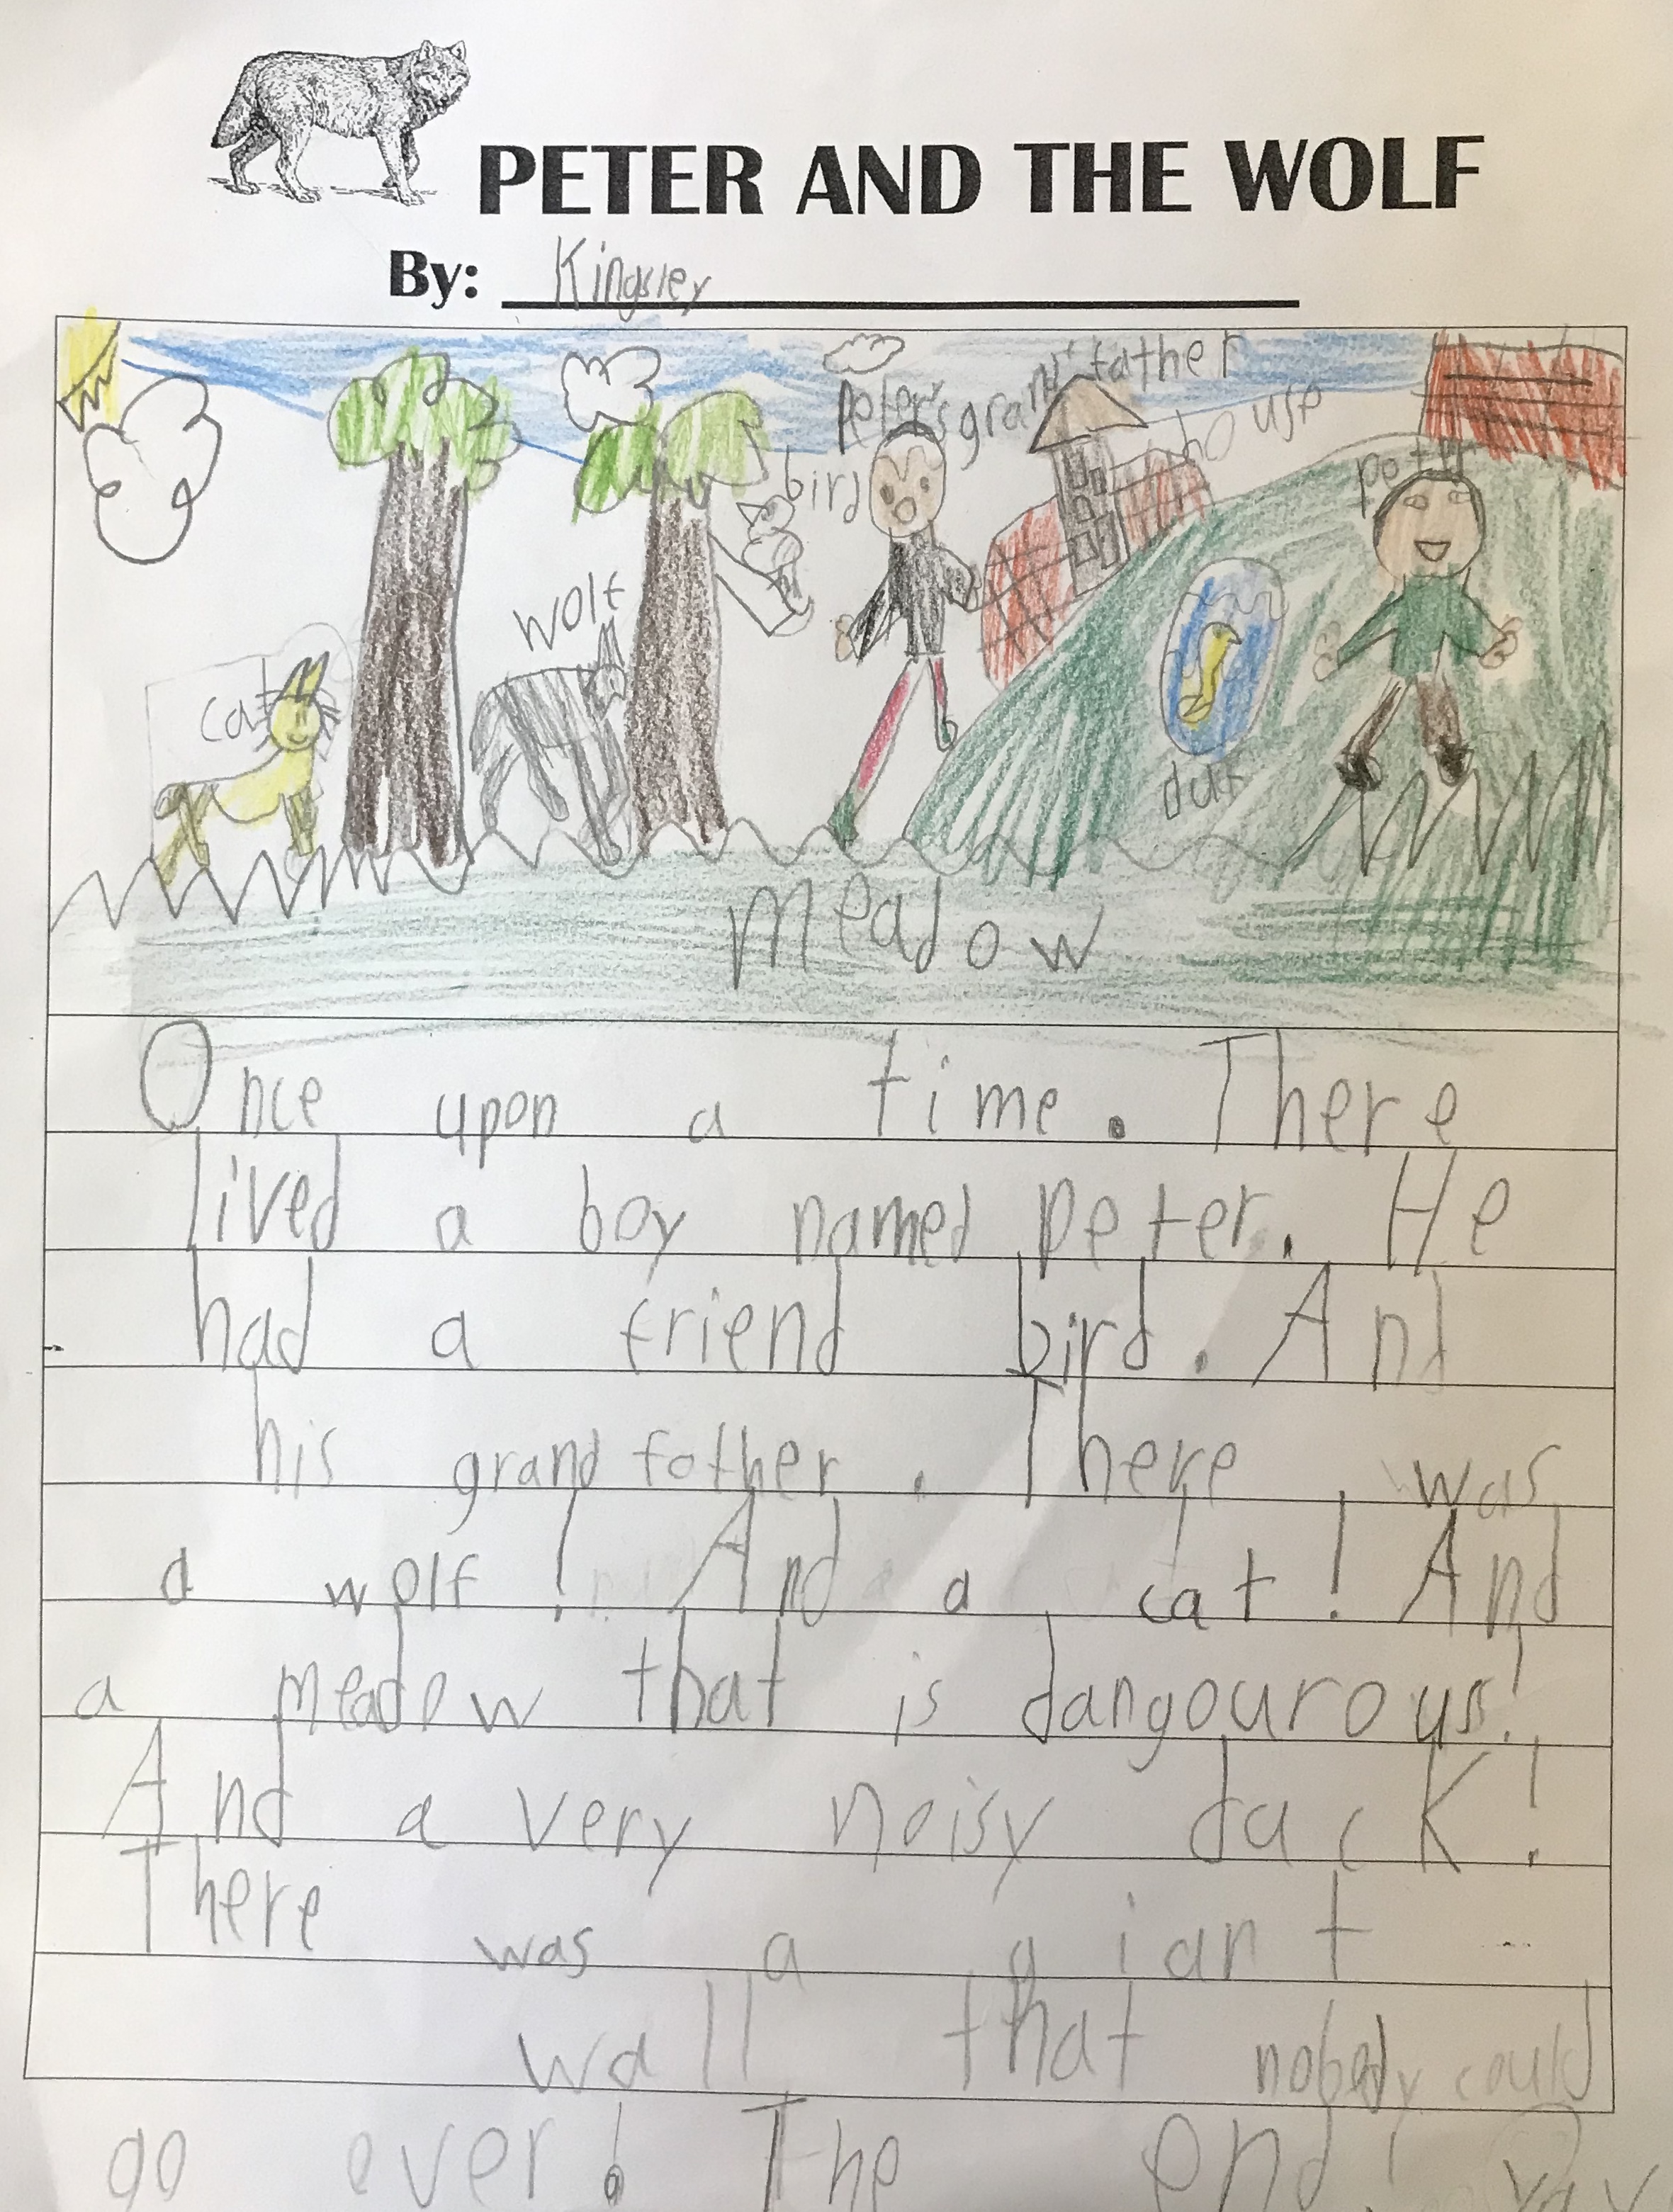 PETER AND THE WOLF
By: Kingsley
Peter's grand father
house
bird
wolf
cat
meadow
Once upon a time. There
lived a boy named peter. He
had a friend bird. And
his grand father. There was
a wolf! And a cat! And
a meadow that is dangourous!
And a very noisy duck!
There was a giant
wall that nobody could
go ever! The end!